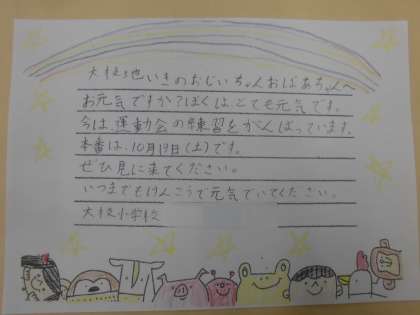 大枝地いきのおじいちゃんおばあちゃんへ
お元気ですか?ぼくは、とても元気です。
今は、運動会の練習をがんばっています。
本番は、10月19日(土)です。
ぜひ見に来てください。
いつまでもけんこうで元気でいてください。
大枝小学校